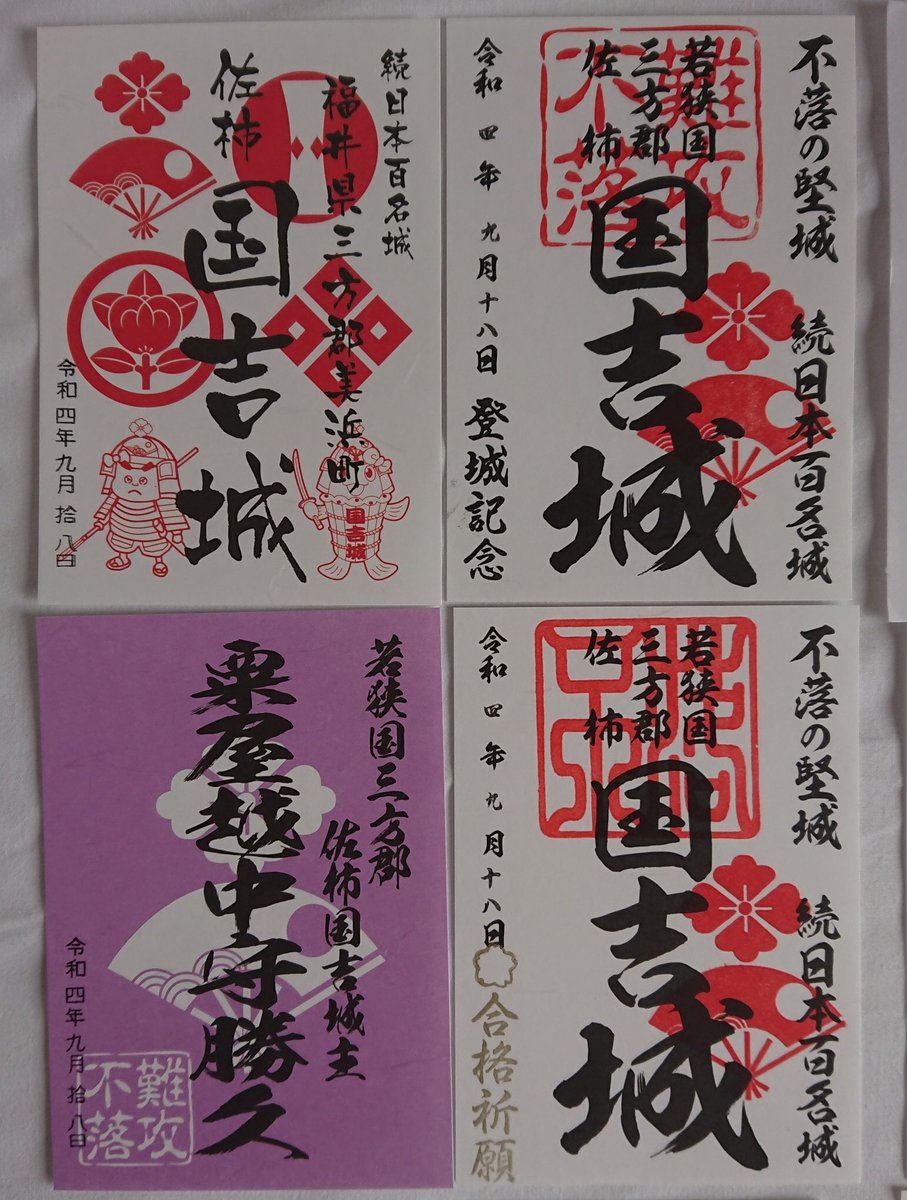 続日本百名城
福井県三方郡美浜町
佐柿
国吉城
令和四年九月拾八日
国吉城
不落の堅城
続日本百名城
若狭国
三方郡
佐柿
難攻
不落
国吉城
令和四年九月十八日
登城記念
若狭国三方郡
佐柿国吉城主
粟屋越中守勝久
令和四年九月拾八日
難攻
不落
不落の堅城
続日本百名城
若狭国
三方郡
佐柿
国吉城
令和四年九月十八日
合格祈願